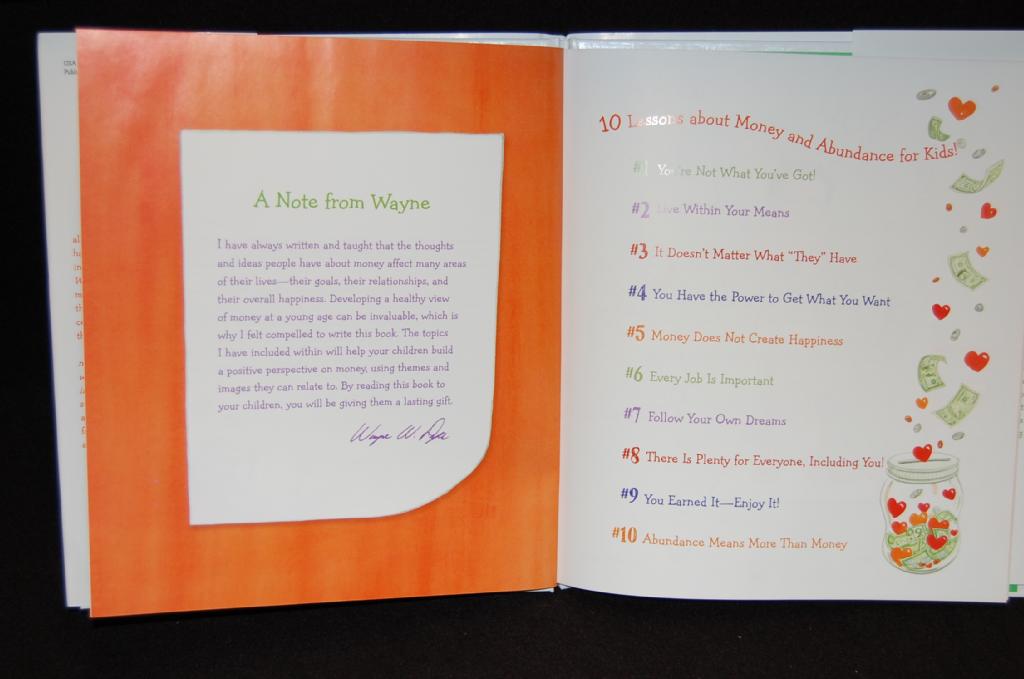 A Note from Wayne
I have always written and taught that the thoughts
and ideas people have about money affect many areas
of their lives—their goals, their relationships, and
their overall happiness. Developing a healthy view
of money at a young age can be invaluable, which is
why I felt compelled to write this book. The topics
I have included within will help your children build
a positive perspective on money, using themes and
images they can relate to. By reading this book to
your children, you will be giving them a lasting gift.
Wayne W. Dyer
10 Lessons about Money and Abundance for Kids!
#1 You're Not What You've Got!
#2 Live Within Your Means
#3 It Doesn't Matter What "They" Have
#4 You Have the Power to Get What You Want
#5 Money Does Not Create Happiness
#6 Every Job Is Important
#7 Follow Your Own Dreams
#8 There Is Plenty for Everyone, Including You!
#9 You Earned It—Enjoy It!
#10 Abundance Means More Than Money